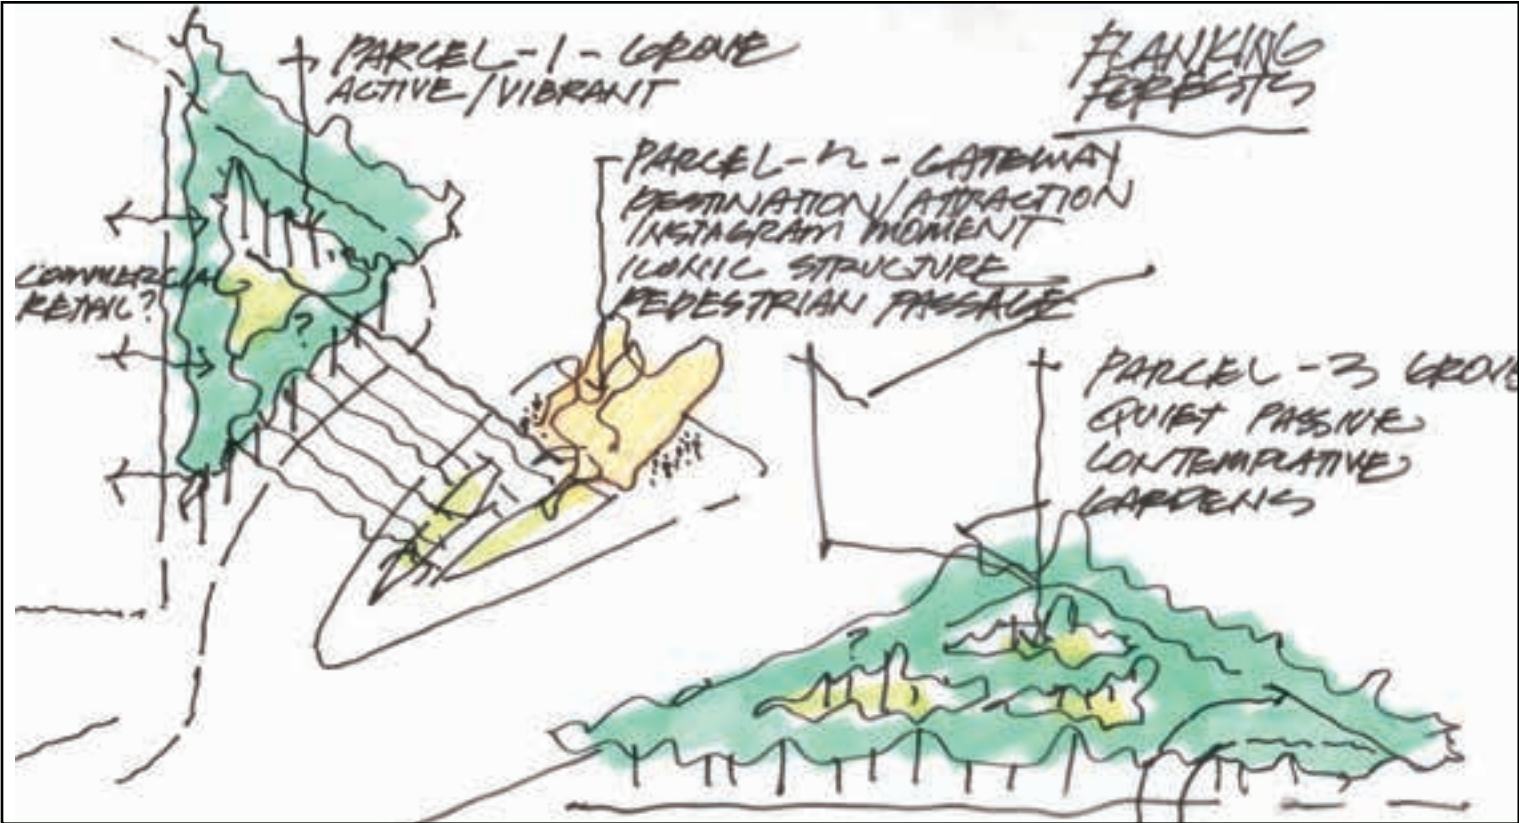 PARCEL-1-GROVE
ACTIVE/VIBRANT
FLANKING
FORESTS
PARCEL-2-GATEWAY
DESTINATION/ATTRACTION
INSTAGRAM MOMENT
ICONIC STRUCTURE
PEDESTRIAN PASSAGE
COMMERCIAL
RETAIL?
?
PARCEL-3 GROVE
QUIET PASSIVE
CONTEMPLATIVE
GARDENS
?